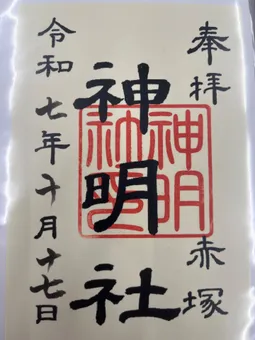 奉拝 赤塚
神明社
令和七年十月十七日
神明社印